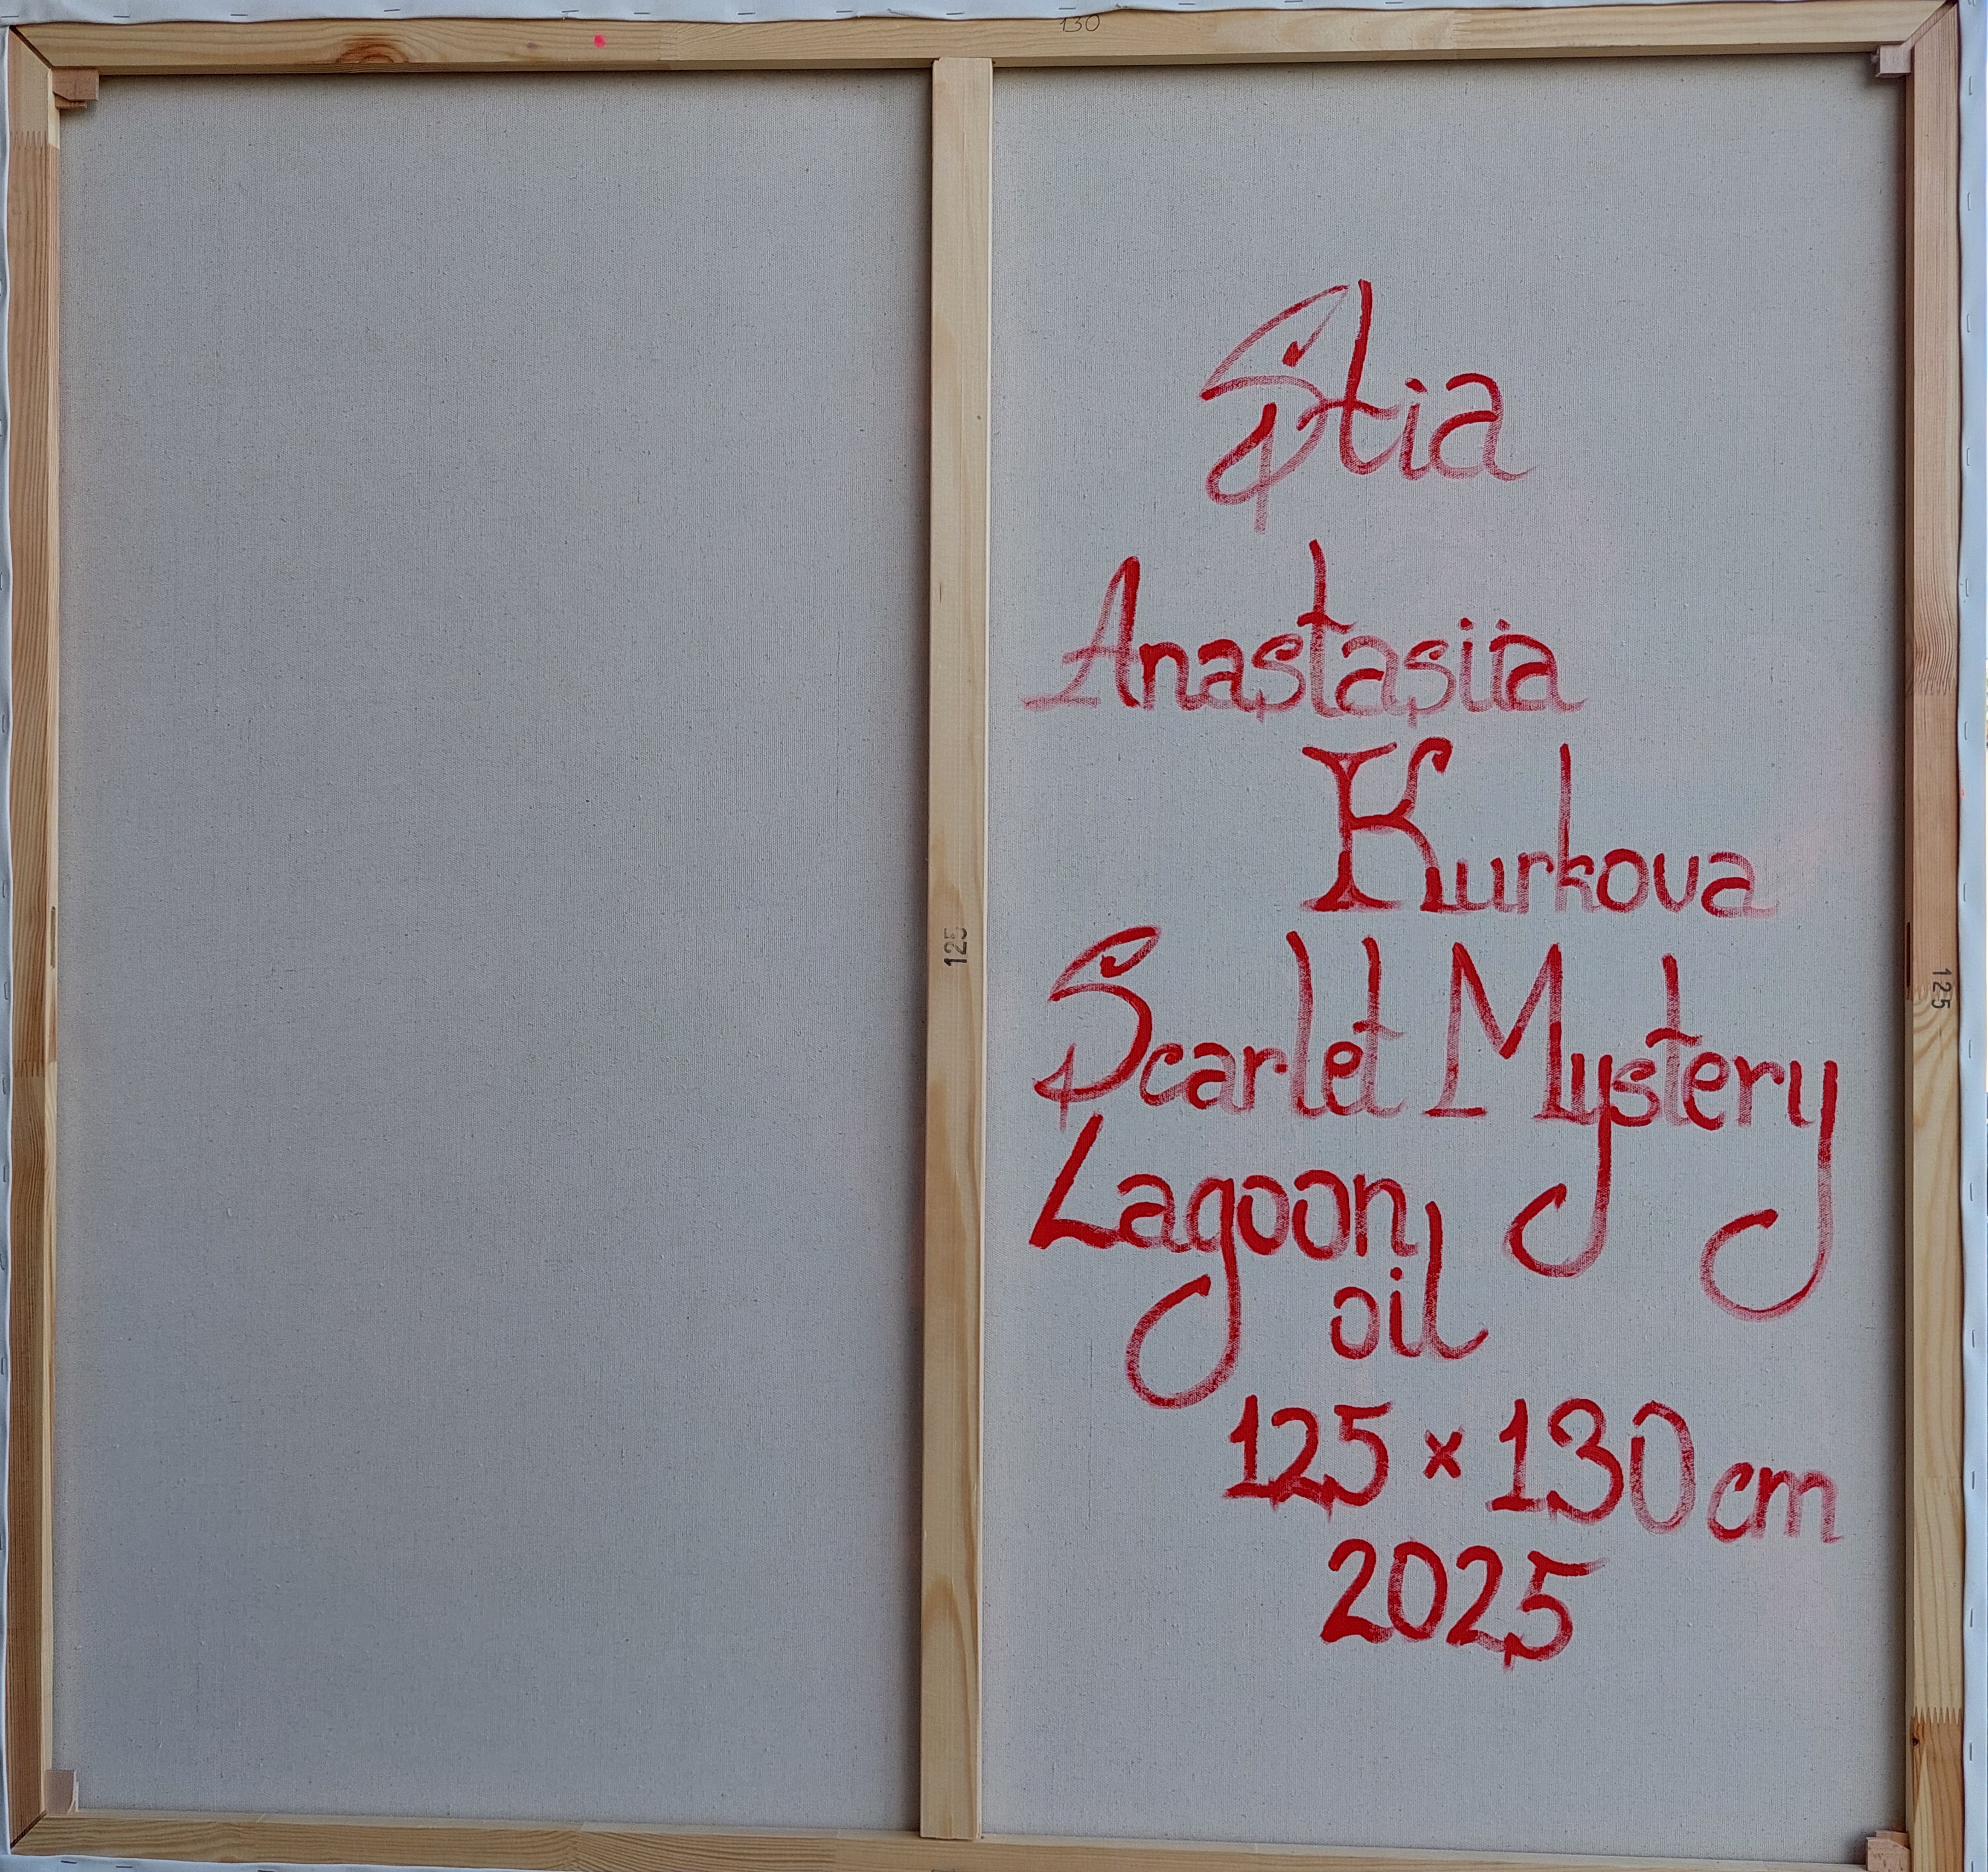 130
Stia
Anastasiia
Kurkova
Scarlet Mystery
Lagoon
oil
125 × 130 cm
2025
125
125